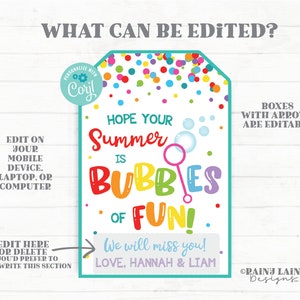 WHAT CAN BE EDITED?
PERSONALIZE WITH
Corjl
HOPE YOUR
Summer
IS
BUBBLES
OF FUN!
We will miss you!
LOVE, HANNAH & LIAM
EDIT ON
YOUR
MOBILE
DEVICE,
LAPTOP, OR
COMPUTER
BOXES
WITH ARROW
ARE EDITAB
EDIT HERE
OR DELETE
OU'D PREFER TO
WRITE THIS SECTION
©RAINJ LAINE
Designs